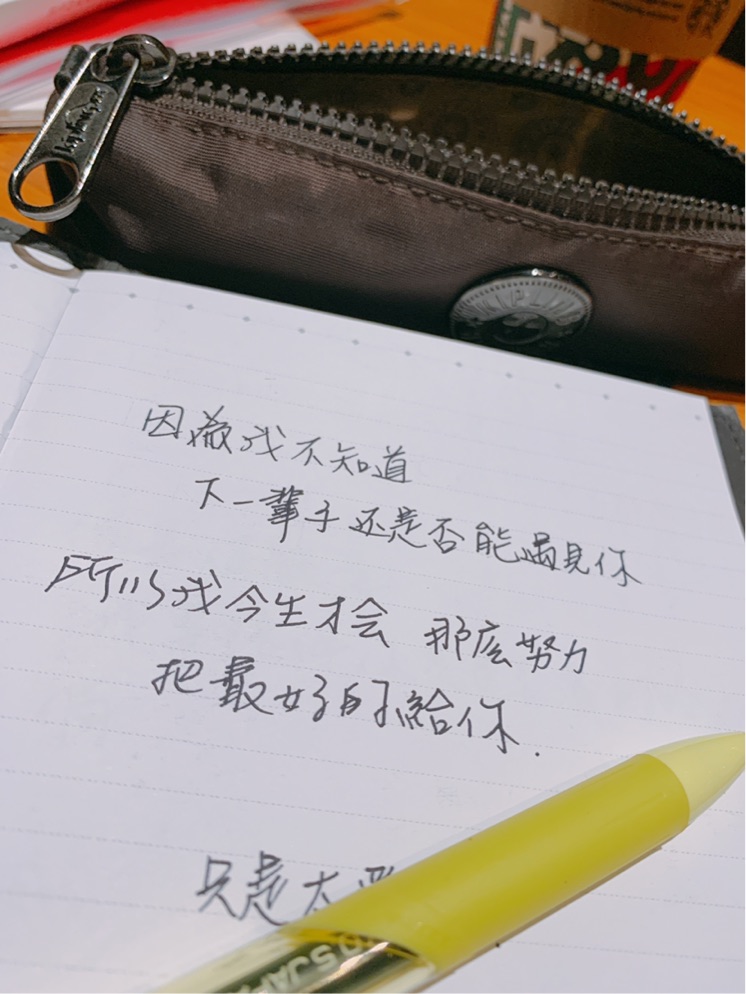 KIPLING
因為我不知道
下一輩子还是否能遇見你
所以我今生才会 那庅努力
把最好的給你.
只是太